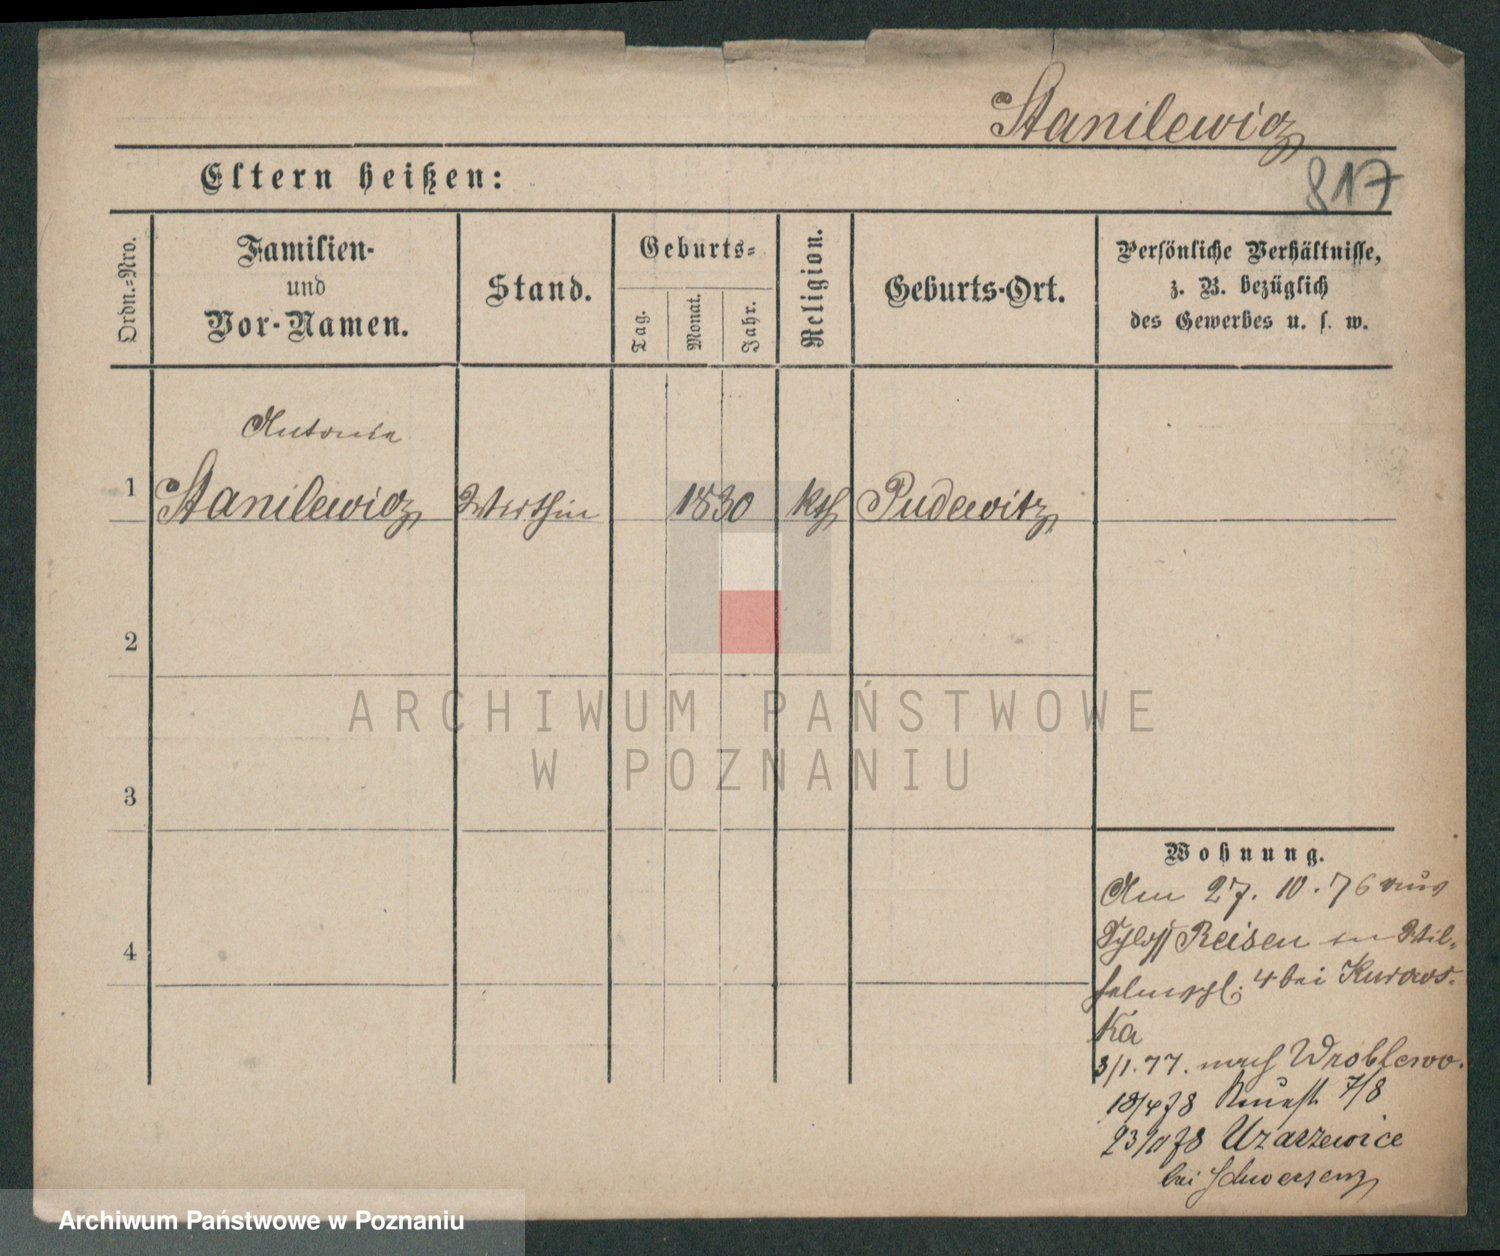 Stanilewicz
817
Eltern heißen:
Ordn.-Nro.
Familien-
und
Vor-Namen.
Stand.
Geburts-
Tag.
Monat.
Jahr.
Religion.
Geburts-Ort.
Persönliche Verhältnisse,
z. B. bezüglich
des Gewerbes u. s. w.
Antonie
1
Stanilewicz
Wirthin
1830
kth
Pudewitz
2
ARCHIWUM PAŃSTWOWE
W POZNANIU
3
Wohnung.
Am 27. 10. 76 aus
Schloß Reisen in Wil-
helmspl. 4 bei Kurows-
ka
4
3/1. 77. nach Wroblewo.
18/4 78 7/8
23/11 78 Uzarzewice
bei Schwersenz
Archiwum Państwowe w Poznaniu